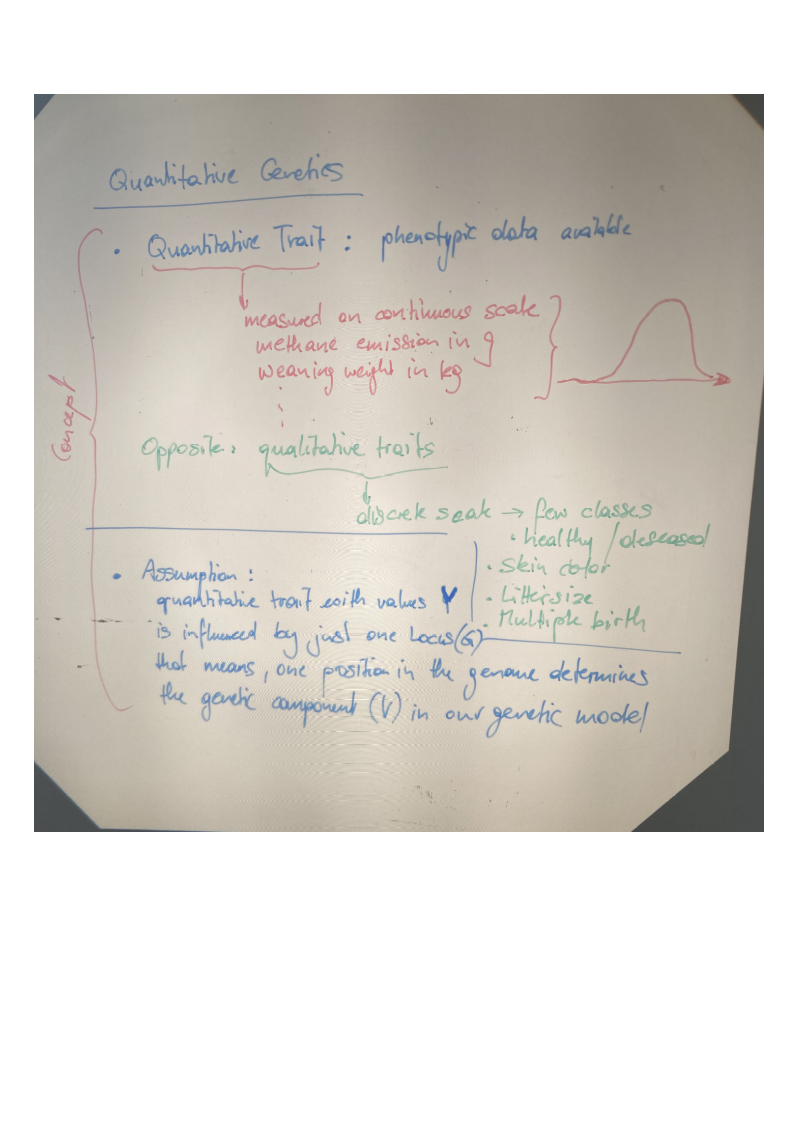 Quantitative Genetics
• Quantitative Trait : phenotypic data available
measured on continuous scale
methane emission in g
weaning weight in kg
Concept
Opposite: qualitative traits
discrete scale → few classes
• healthy / deseased
• Skin color
• Litter size
• Multiple birth
• Assumption :
quantitative trait with values Y
is influenced by just one Locus (G)
that means, one position in the genome determines
the genetic component (V) in our genetic model